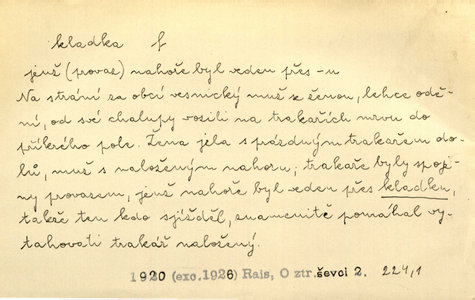 kladka f
jenž (provaz) nahoře byl veden přes -u
Na stráni za obcí vesnický muž se ženou, lehce odě-
ní, od své chalupy vozili na trakařích mrvu do
příkrého pole. Žena jela s prázdným trakařem do-
lů, muž s naloženým nahoru; trakaře byly spoje-
ny provazem, jenž nahoře byl veden přes kladku,
takže ten kdo sjížděl, znamenitě pomáhal vy-
tahovati trakář naložený.
1920 (exc.1926) Rais, O ztr.ševci 2. 224,1